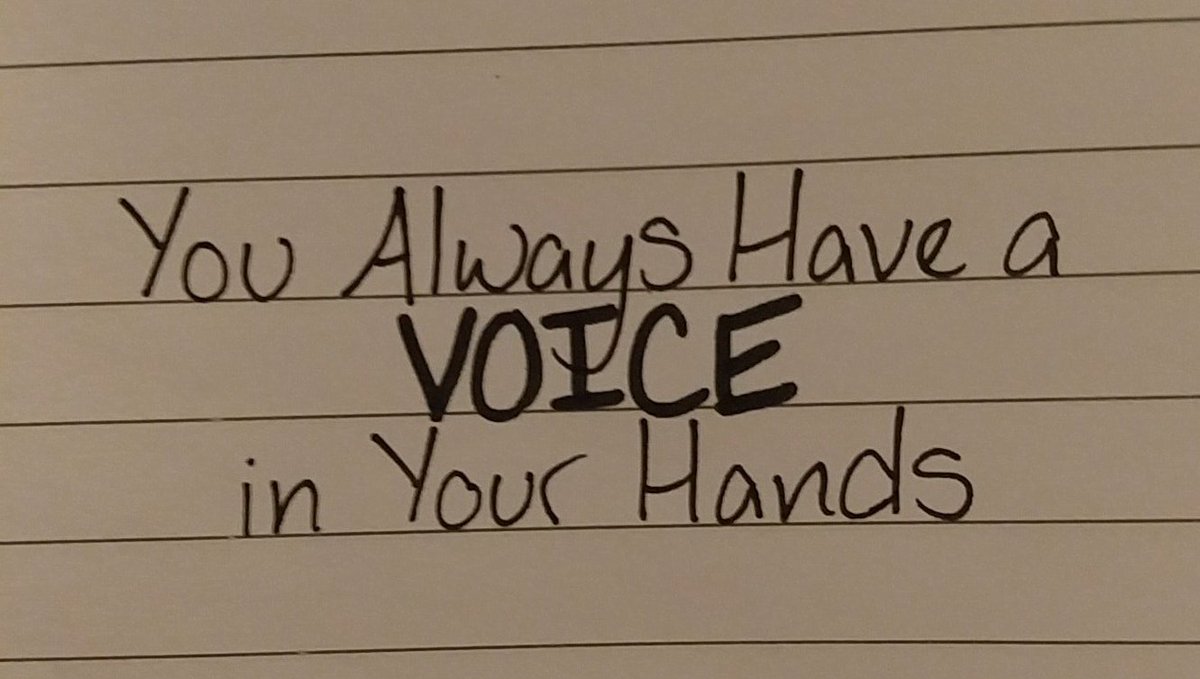 You Always Have a
VOICE
in Your Hands